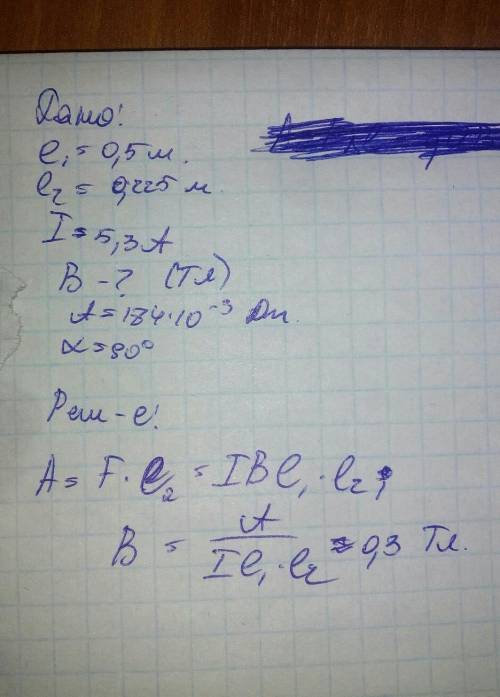 Дано:
l₁ = 0,5 м.
l₂ = 0,225 м.
I = 5,3 А
B - ? (Тл)
A = 184·10⁻³ Дж.
α = 90°
Реш-е:
A = F·l₂ = IBl₁·l₂;
B = A / Il₁·l₂ ≈ 0,3 Тл.